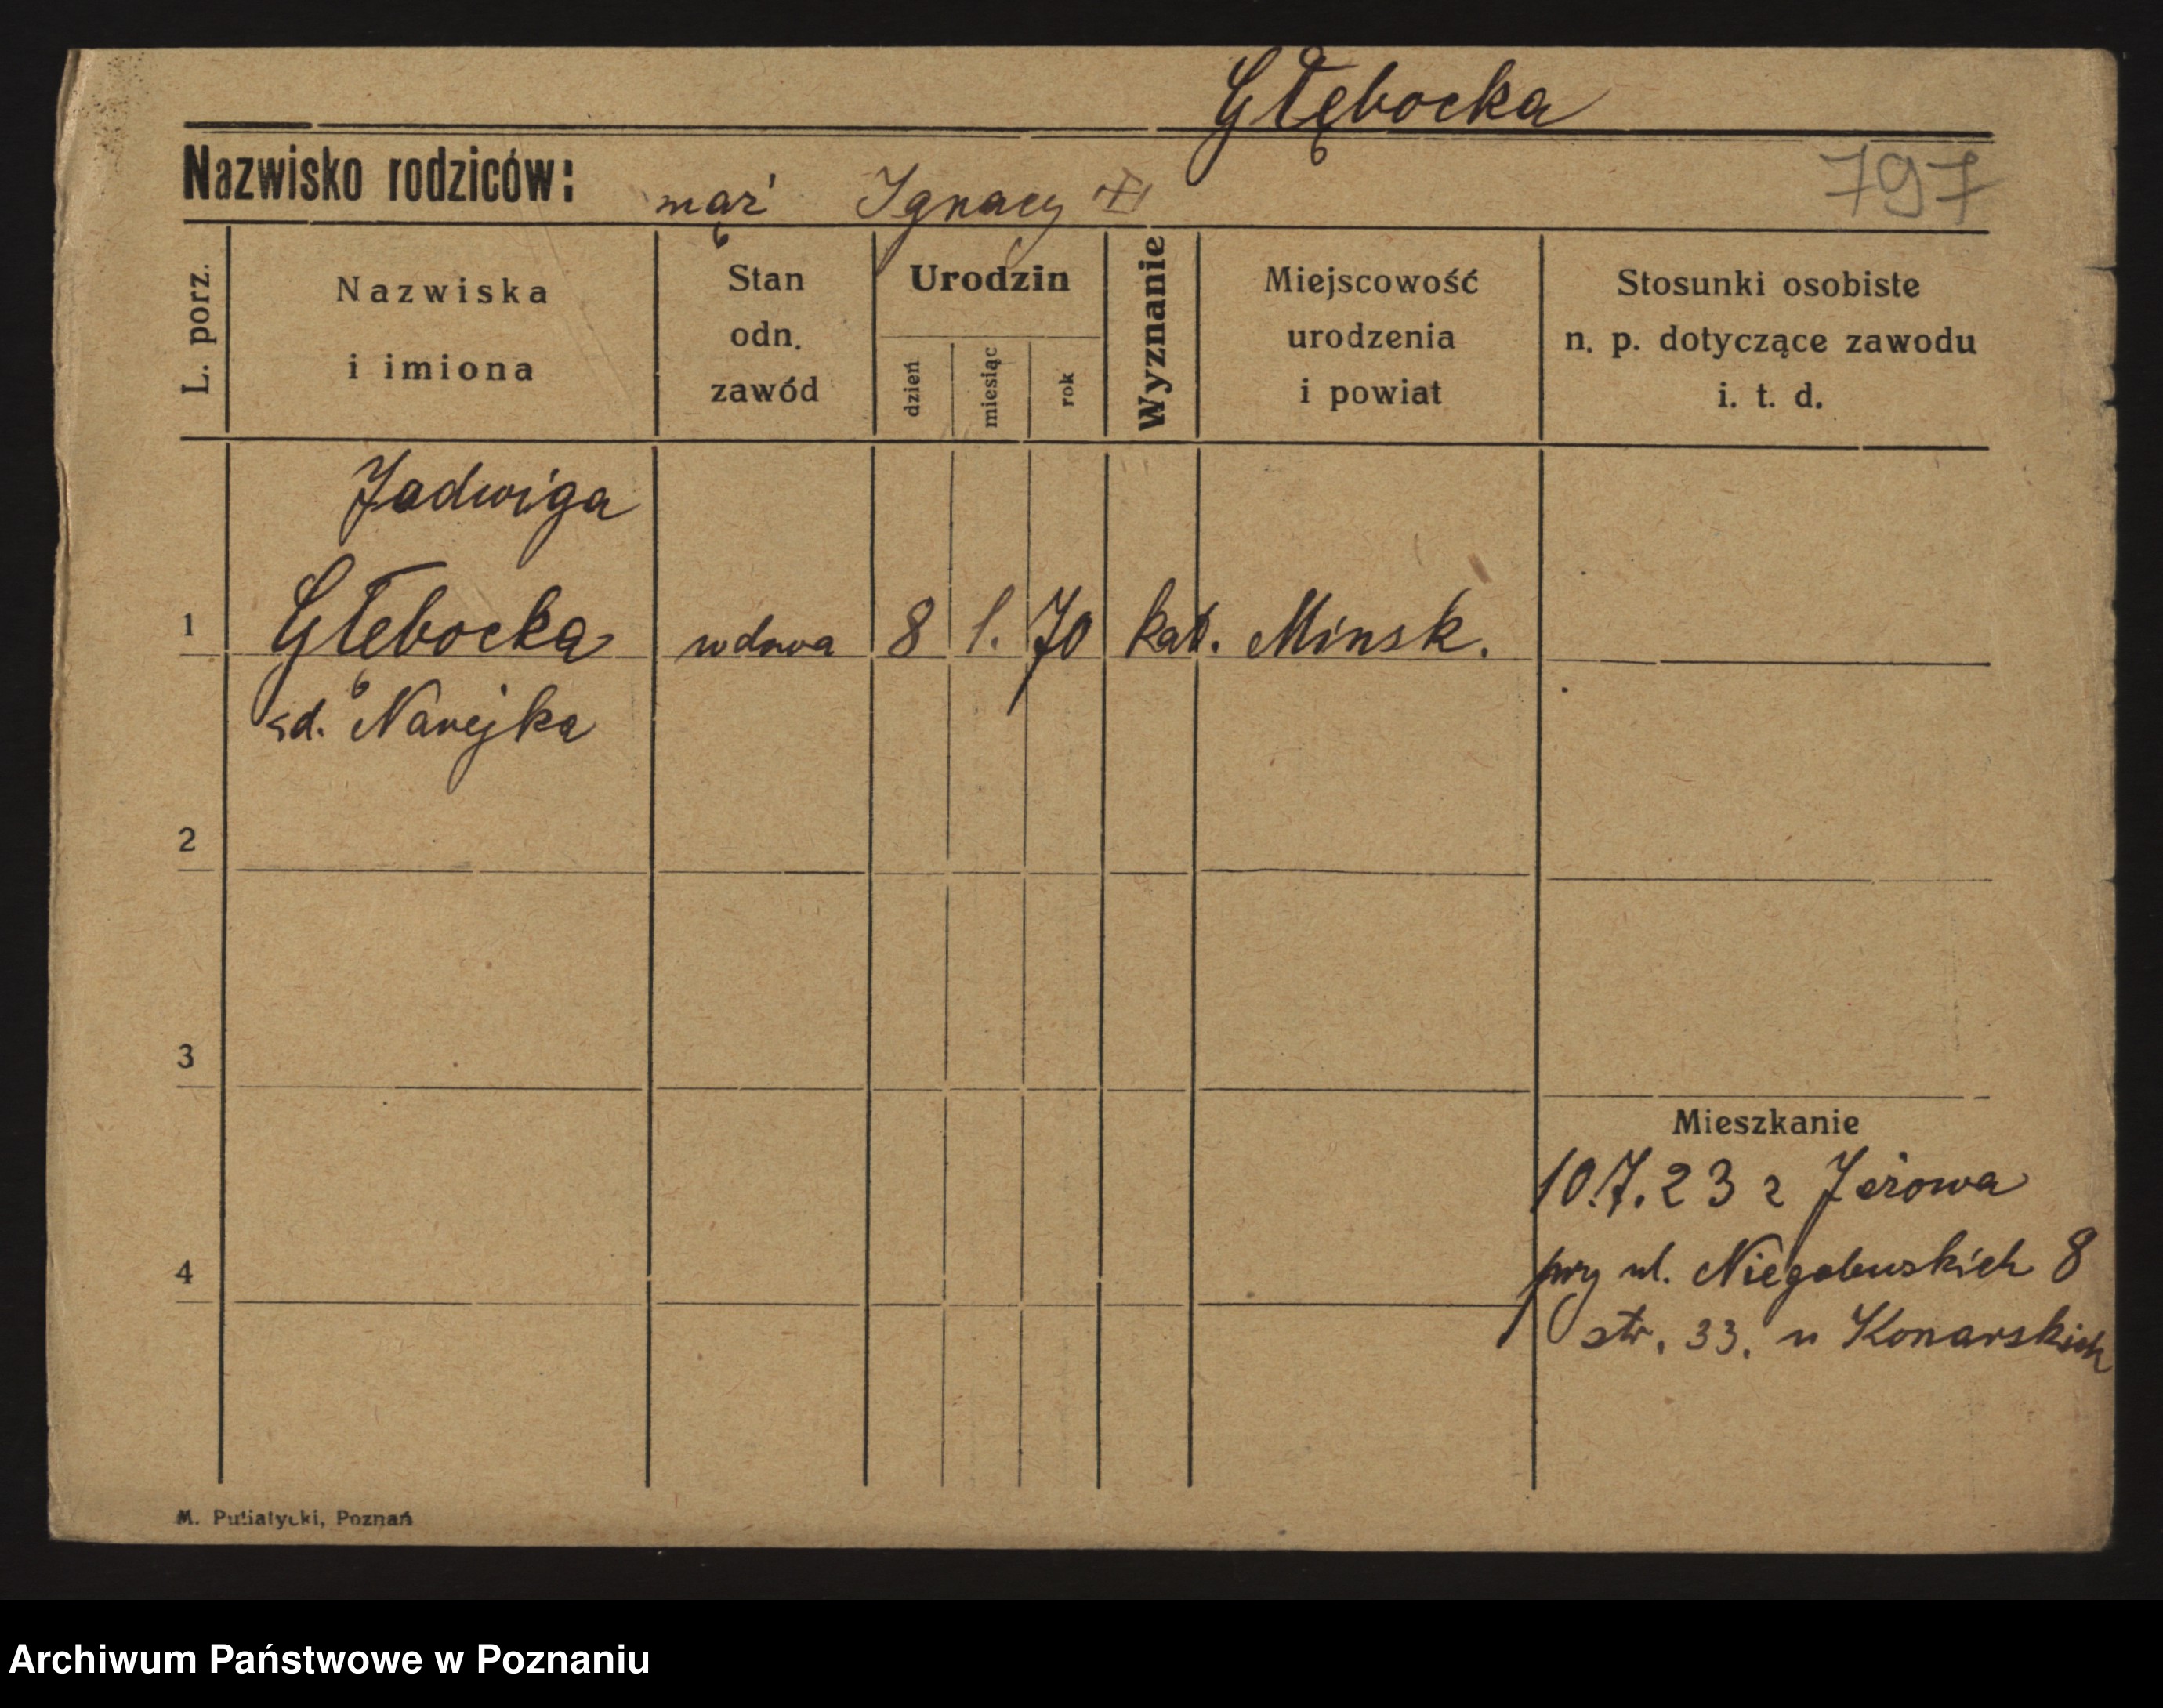 Głębocka
Nazwisko rodziców: mąż Ignacy
797
L. porz.
Nazwiska
i imiona
Stan
odn.
zawód
Urodzin
dzień
miesiąc
rok
Wyznanie
Miejscowość
urodzenia
i powiat
Stosunki osobiste
n. p. dotyczące zawodu
i. t. d.
Jadwiga
1 Głębocka wdowa 8 1. 70 kat. Minsk.
2
3
Mieszkanie
10.7.23 z
4
przy ul. Niegolewskich 8
str. 33. u Konarskich
M. Putiatycki, Poznań
Archiwum Państwowe w Poznaniu